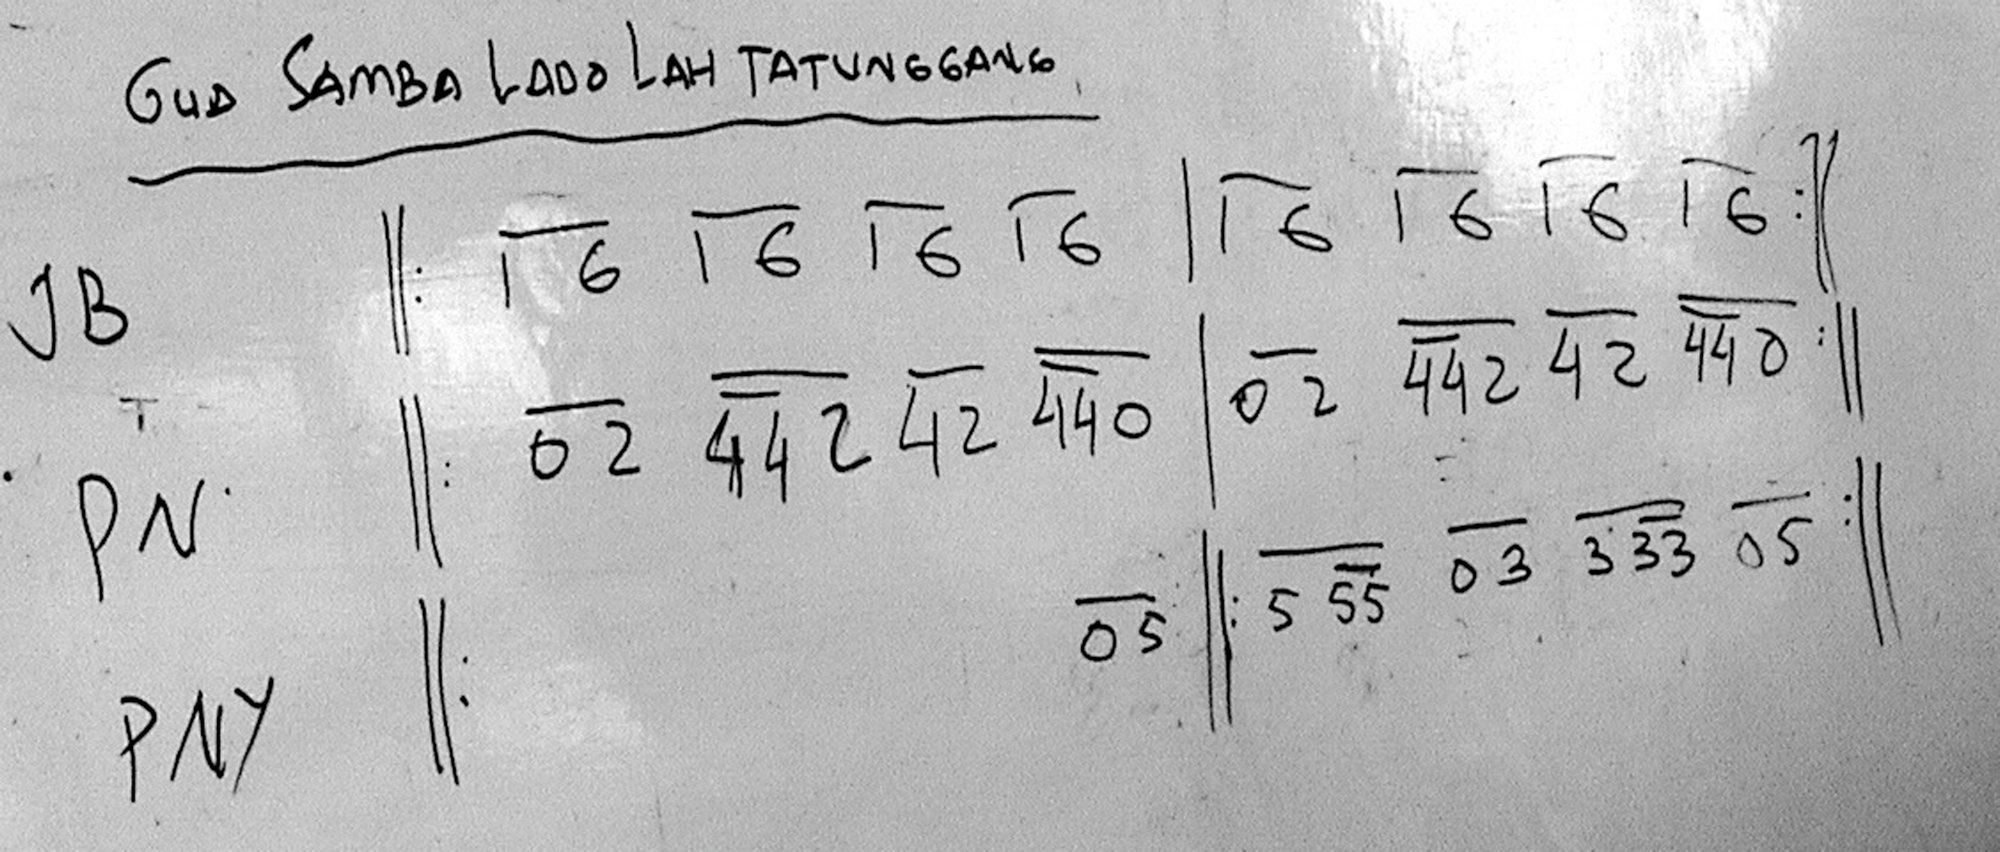 GUA SAMBA LADO LAH TATUNGGANG
JB ||: 16 16 16 16 | 16 16 16 16 :||
PN. ||: 02 442 42 440 | 02 442 42 440 :||
PNY ||: 05 ||: 5 55 03 3 33 05 :||